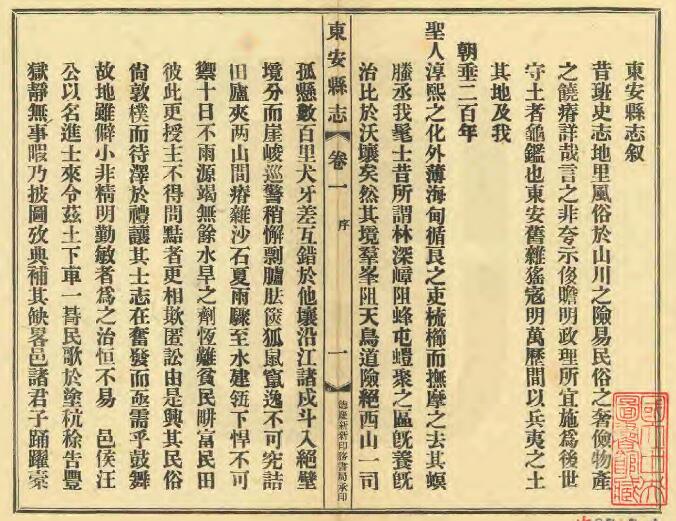 東安縣志叙
昔班史志地里風俗於山川之險易民俗之奢儉物產
之饒瘠詳哉言之非夸示俊瞻明政理所宜施為後世
守土者龜鑑也東安舊雜猺寇明萬歷間以兵夷之土
其地及我
朝垂二百年
聖人淳熙之化外薄海甸循良之吏梳櫛而撫摩之去其螟
螣丞我髦士昔所謂林深嶂阻蜂屯螘聚之區既養既
治比於沃壤矣然其境羣峯阻天鳥道險絕西山一司
東安縣志
卷一
序
一
德慶新新印務書局承印
孤懸數百里犬牙差互錯於他壤沿江諸戍斗入絕壁
境分而崖峻巡警稍懈剽臚胠篋狐鼠竄逸不可究詰
田廬夾两山間瘠雜沙石夏雨驟至水建瓴下悍不可
禦十日不雨源竭無餘水旱之劑恆離貧民畊富民田
彼此更授主不得問黠者更相欺匿訟由是興其民俗
尙敦樸而待澤於禮讓其士志在奮發而亟需乎鼓舞
故地雖僻小非精明勤敏者為之治恒不易 邑侯汪
公以名進士來令茲土下車一朞民歌於塗秔稌告豐
獄靜無事暇乃披圖攷典補其缺畧邑諸君子踊躍橐